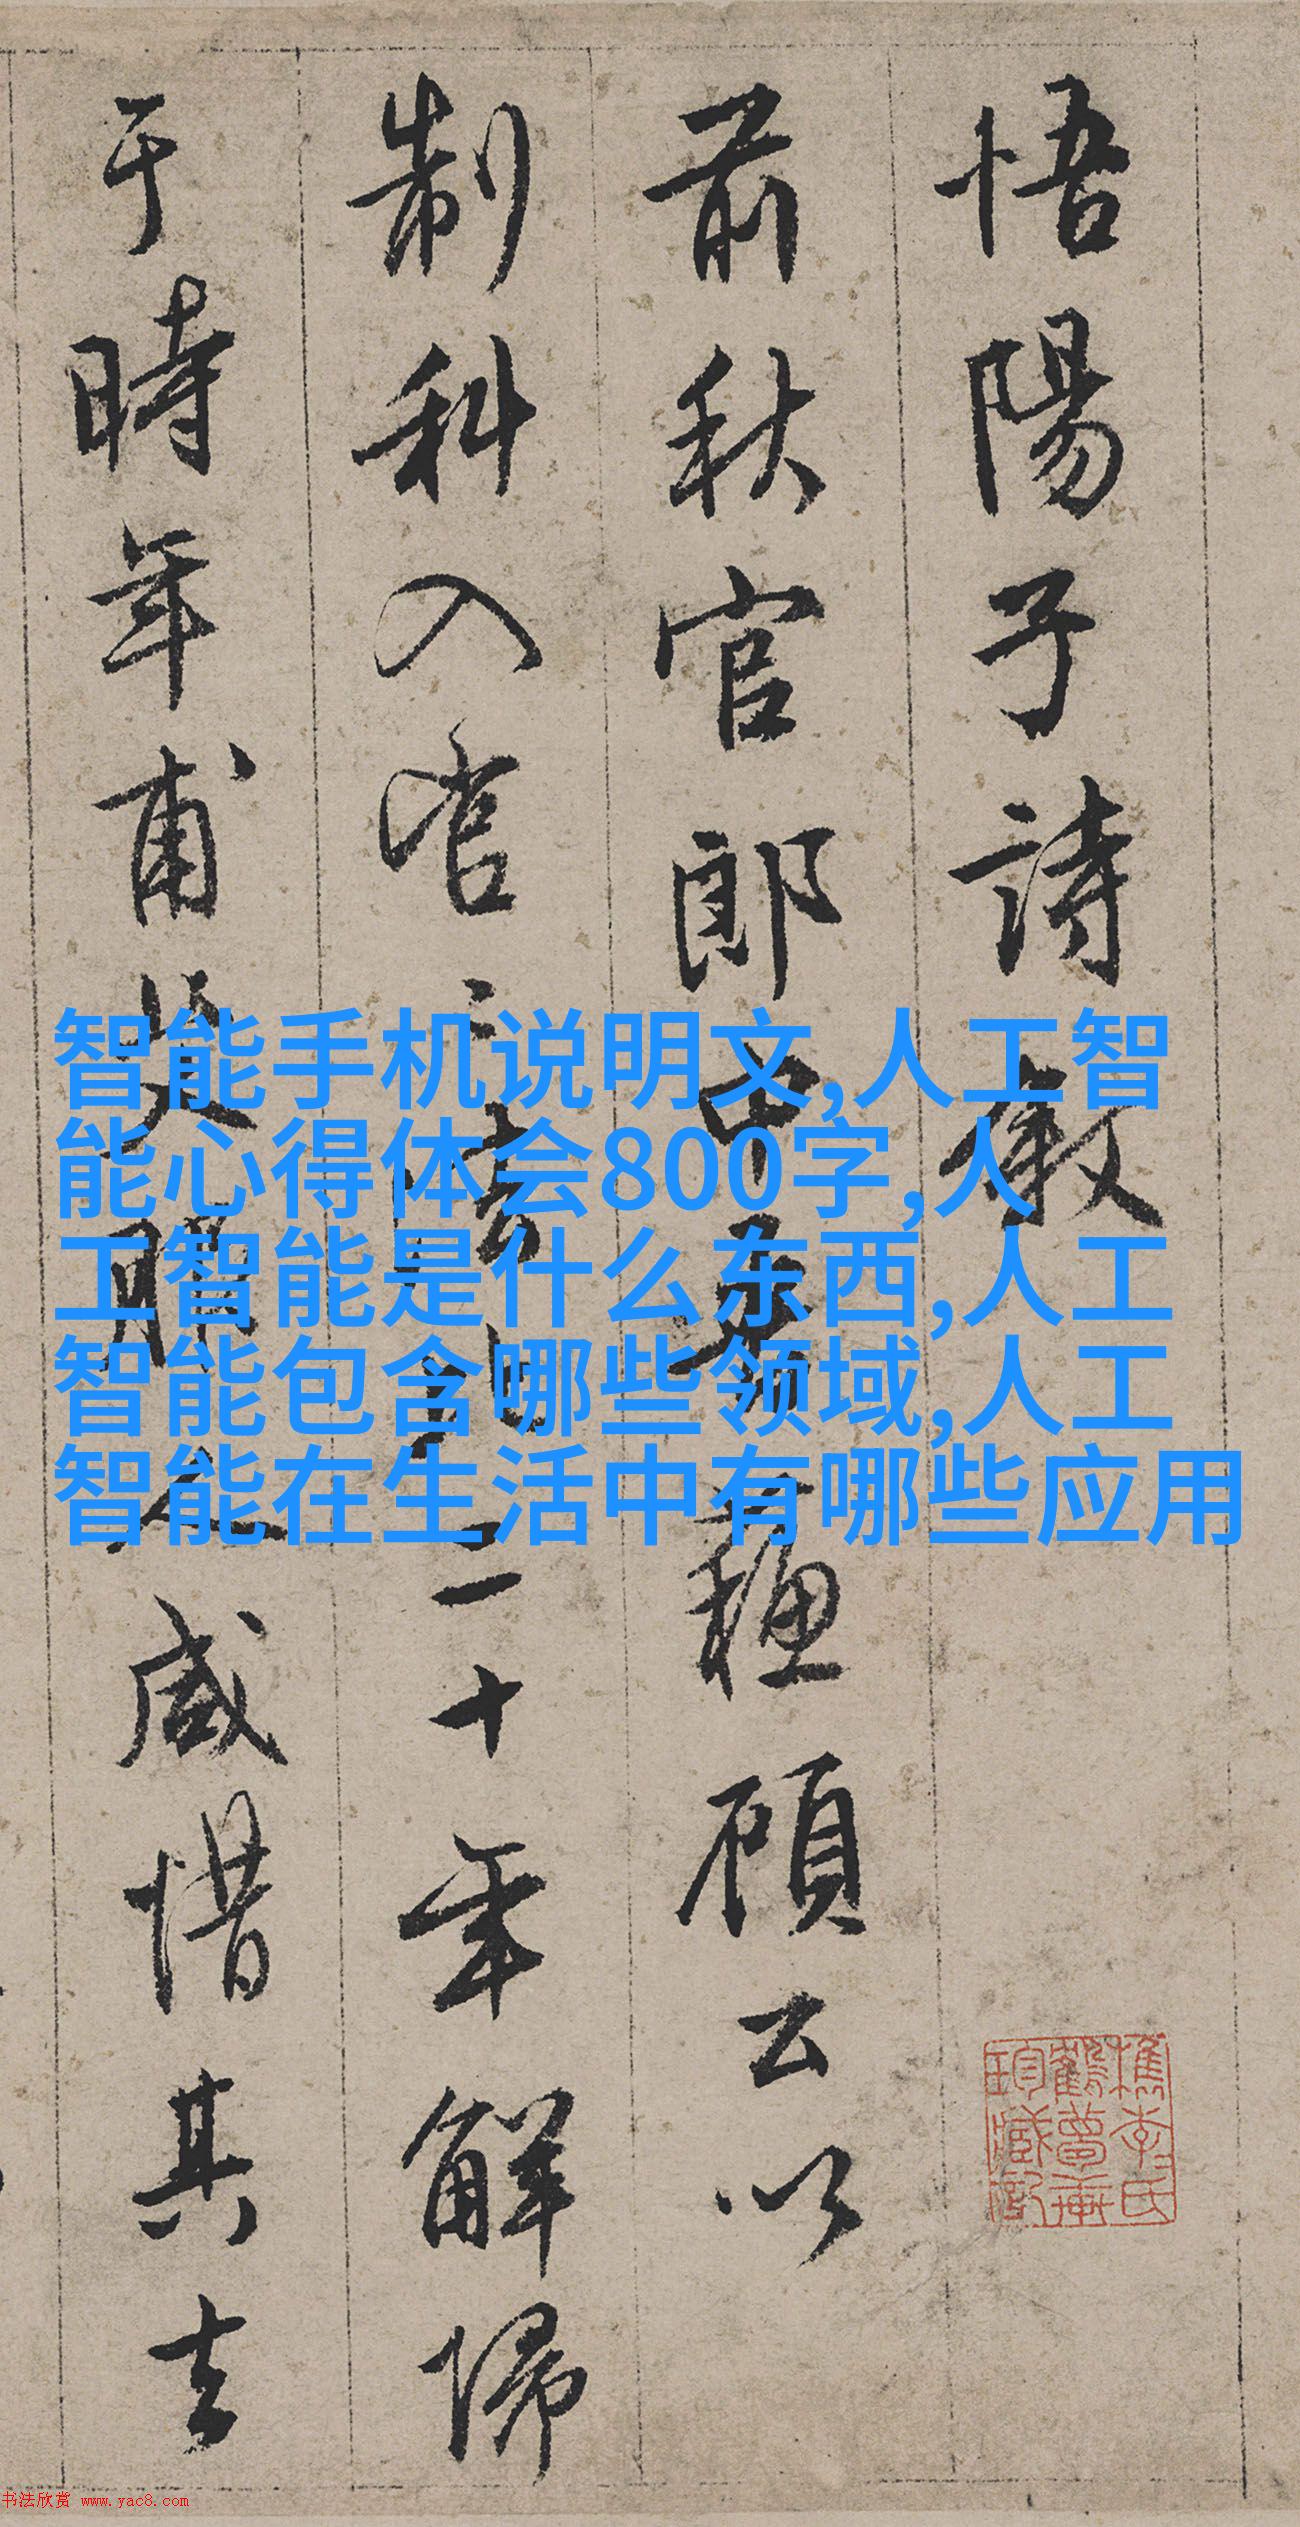 悟陽子詩敘
前秋官郎中顧公以
制科入官二十年解歸
于時年甫咸惜其去
智能手机说明文,人工智
能心得体会800字,人
工智能是什么东西,人工
智能包含哪些领域,人工
智能在生活中有哪些应用
樵李氏
鶴夢軒
珍藏記
书法欣赏 www.yac8.com